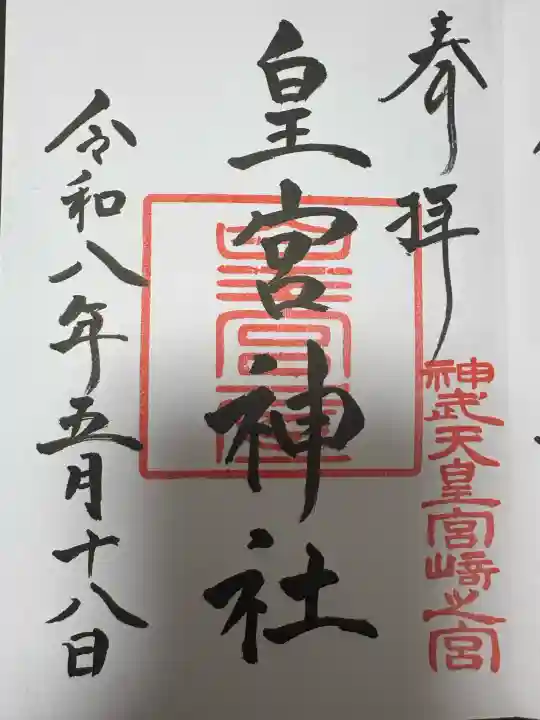 奉拝
神武天皇宮﨑之宮
皇宮神社
令和八年五月十八日